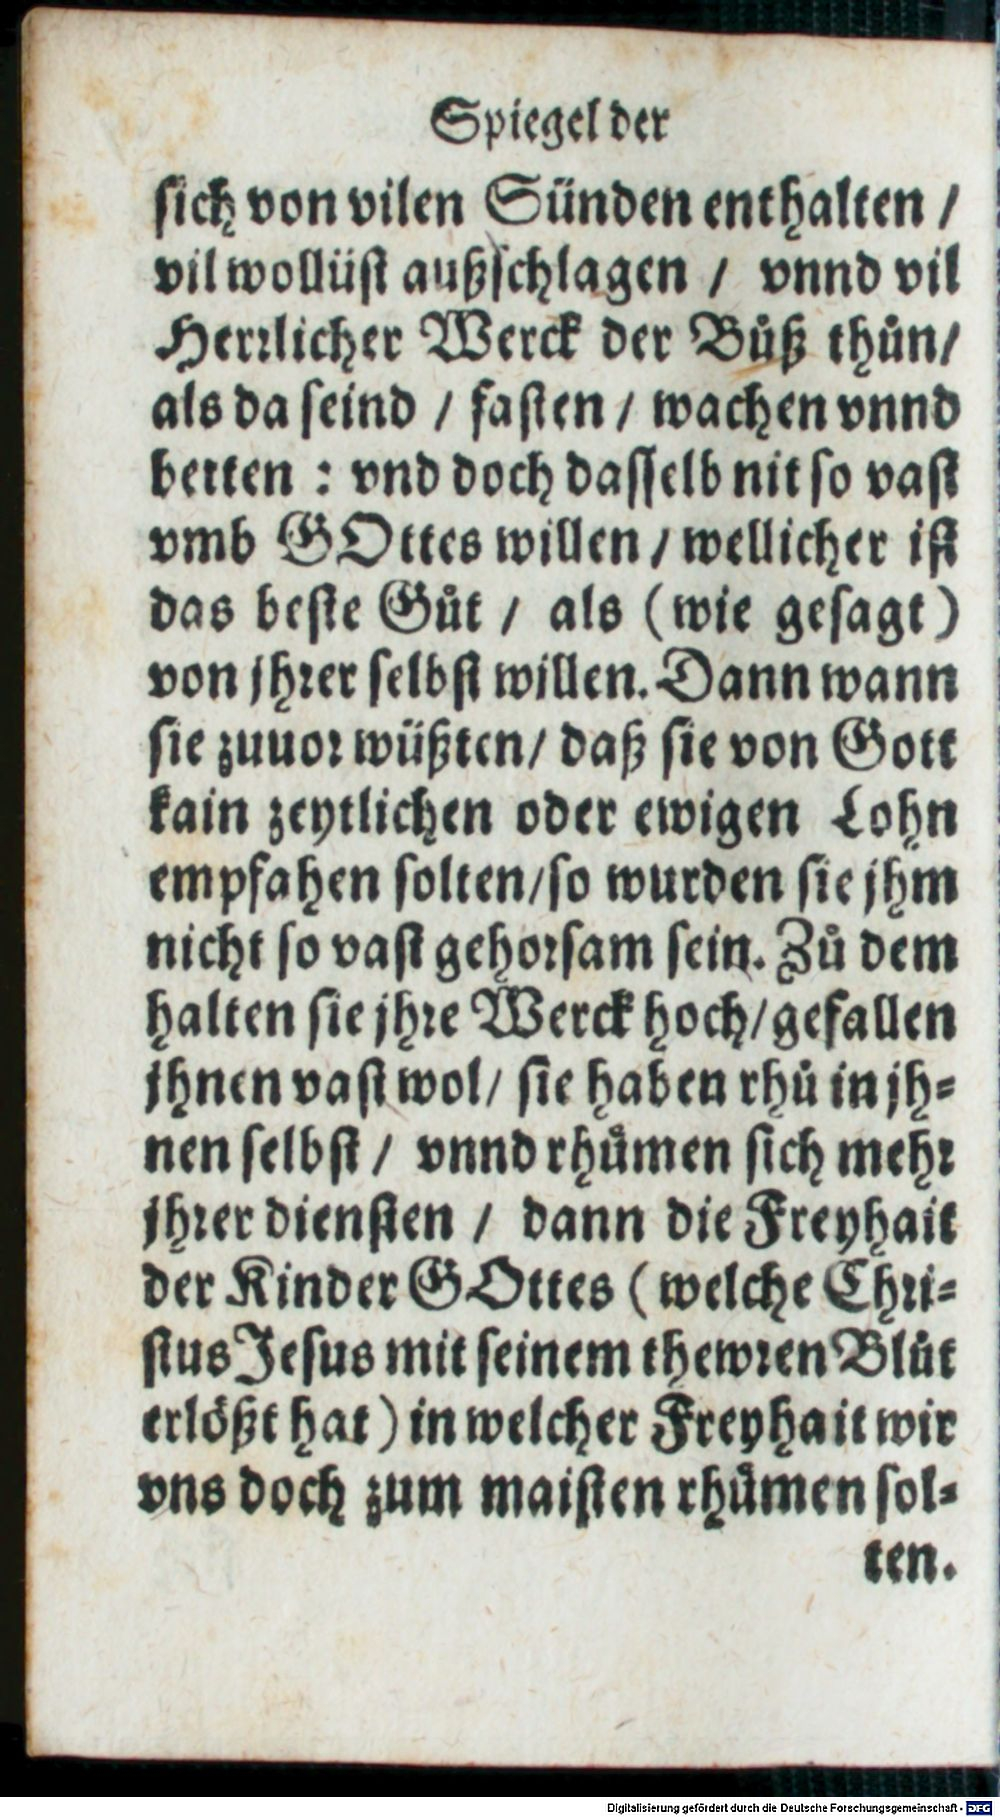 Spiegel der
sich von vilen Sünden enthalten /
vil wollüst außschlagen / vnnd vil
Herꝛlicher Werck der Bůß thůn/
als da seind / fasten / wachen vnnd
betten : vnd doch dasselb nit so vast
vmb GOttes willen / wellicher ist
das beste Gůt / als (wie gesagt)
von jhꝛer selbst willen. Dann wann
sie zuuoꝛ wüßten/ daß sie von Gott
kain zeytlichen oder ewigen Lohn
empfahen solten/so wurden sie jhm
nicht so vast gehoꝛsam sein. Zů dem
halten sie jhꝛe Werck hoch/gefallen
jhnen vast wol/ sie haben rhů in jh⸗
nen selbst / vnnd rhůmen sich mehꝛ
jhꝛer diensten / dann die Freyhait
der Kinder GOttes ( welche Chꝛi⸗
stus Jesus mit seinem thewꝛen Blůt
erlößt hat) in welcher Freyhait wir
vns doch zum maisten rhůmen sol⸗
ten.
Digitalisierung gefördert durch die Deutsche Forschungsgemeinschaft - DFG